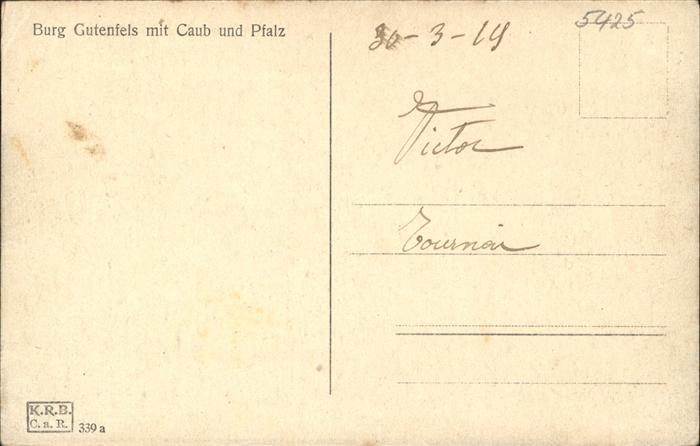 Burg Gutenfels mit Caub und Pfalz
30-3-19
5425
Victor
Tournai
K.R.B.
C. a. R.
339 a